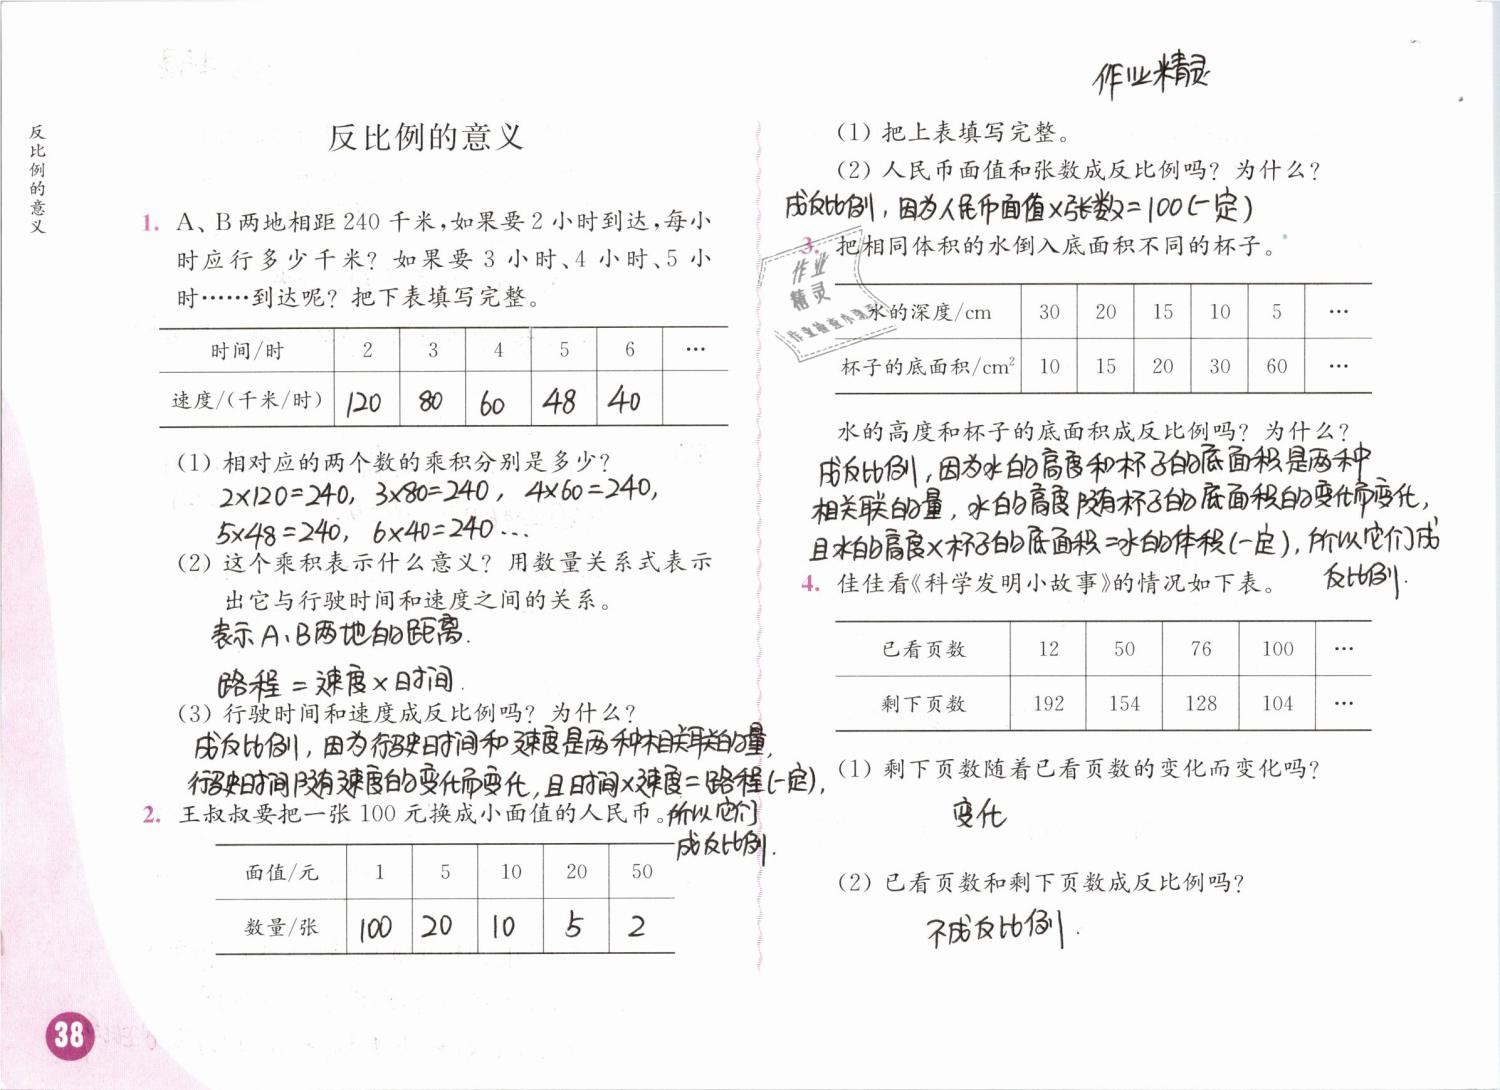 反比例的意义
反比例的意义
1. A、B两地相距240千米,如果要2小时到达,每小
时应行多少千米?如果要3小时、4小时、5小
时……到达呢?把下表填写完整。
时间/时 2 3 4 5 6 …
速度/(千米/时) 120 80 60 48 40
(1) 相对应的两个数的乘积分别是多少?
2×120=240, 3×80=240, 4×60=240,
5×48=240, 6×40=240…
(2) 这个乘积表示什么意义?用数量关系式表示
出它与行驶时间和速度之间的关系。
表示A、B两地的距离.
路程=速度×时间.
(3) 行驶时间和速度成反比例吗?为什么?
成反比例,因为行驶时间和速度是两种相关联的量,
行驶时间随着速度的变化而变化,且时间×速度=路程(一定),
所以它们
成反比例.
2. 王叔叔要把一张100元换成小面值的人民币。
面值/元 1 5 10 20 50
数量/张 100 20 10 5 2
38
作业精灵
(1) 把上表填写完整。
(2) 人民币面值和张数成反比例吗?为什么?
成反比例,因为人民币面值×张数=100(一定)
3. 把相同体积的水倒入底面积不同的杯子。
作业
精灵
水的深度/cm 30 20 15 10 5 …
杯子的底面积/cm² 10 15 20 30 60 …
水的高度和杯子的底面积成反比例吗?为什么?
成反比例,因为水的高度和杯子的底面积是两种
相关联的量,水的高度随着杯子的底面积的变化而变化,
且水的高度×杯子的底面积=水的体积(一定),所以它们成
反比例.
4. 佳佳看《科学发明小故事》的情况如下表。
已看页数 12 50 76 100 …
剩下页数 192 154 128 104 …
(1) 剩下页数随着已看页数的变化而变化吗?
变化
(2) 已看页数和剩下页数成反比例吗?
不成反比例.